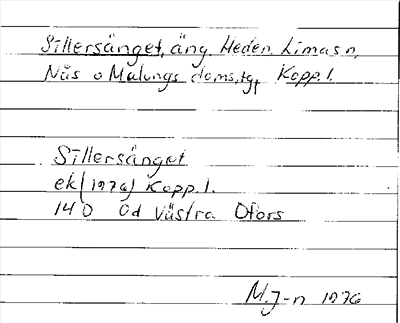 Sillersänget, äng, Heden Limas n,
Näs o Malungs doms.tg, Kopp.l.
Sillersänget
ek (1976) Kopp.l.
14 D 0d Västra Ofors
M.J-n 1976